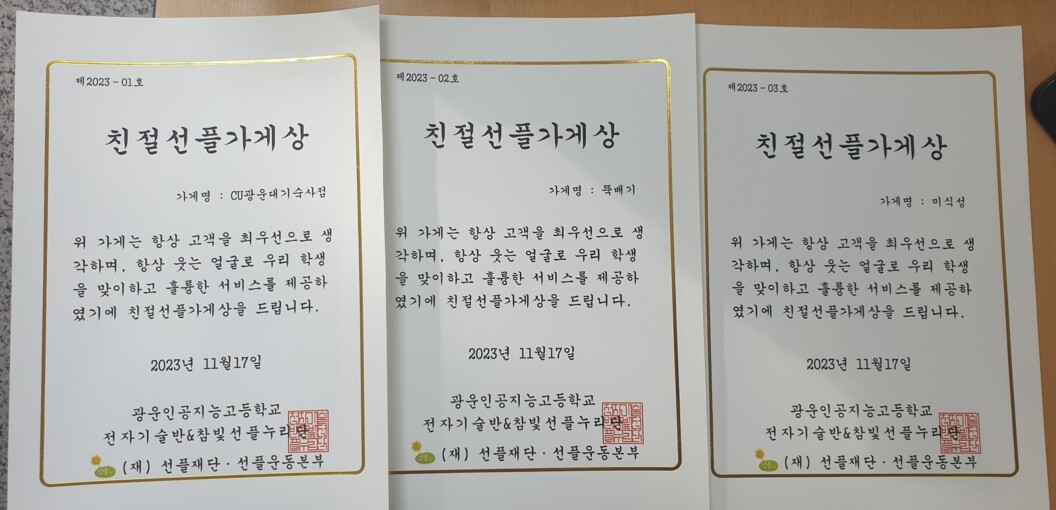 제2023-01호
친절선플가게상
가게명 : CU광운대기숙사점
위 가게는 항상 고객을 최우선으로 생
각하며, 항상 웃는 얼굴로 우리 학생
을 맞이하고 훌륭한 서비스를 제공하
였기에 친절선플가게상을 드립니다.
2023년 11월17일
광운인공지능고등학교
전자기술반&참빛선플누리단
(재) 선플재단·선플운동본부
제2023-02호
친절선플가게상
가게명 : 뚝배기
위 가게는 항상 고객을 최우선으로 생
각하며, 항상 웃는 얼굴로 우리 학생
을 맞이하고 훌륭한 서비스를 제공하
였기에 친절선플가게상을 드립니다.
2023년 11월17일
광운인공지능고등학교
전자기술반&참빛선플누리단
(재) 선플재단·선플운동본부
제2023-03호
친절선플가게상
가게명 : 미식성
위 가게는 항상 고객을 최우선으로 생
각하며, 항상 웃는 얼굴로 우리 학생
을 맞이하고 훌륭한 서비스를 제공하
였기에 친절선플가게상을 드립니다.
2023년 11월17일
광운인공지능고등학교
전자기술반&참빛선플누리단
(재) 선플재단·선플운동본부